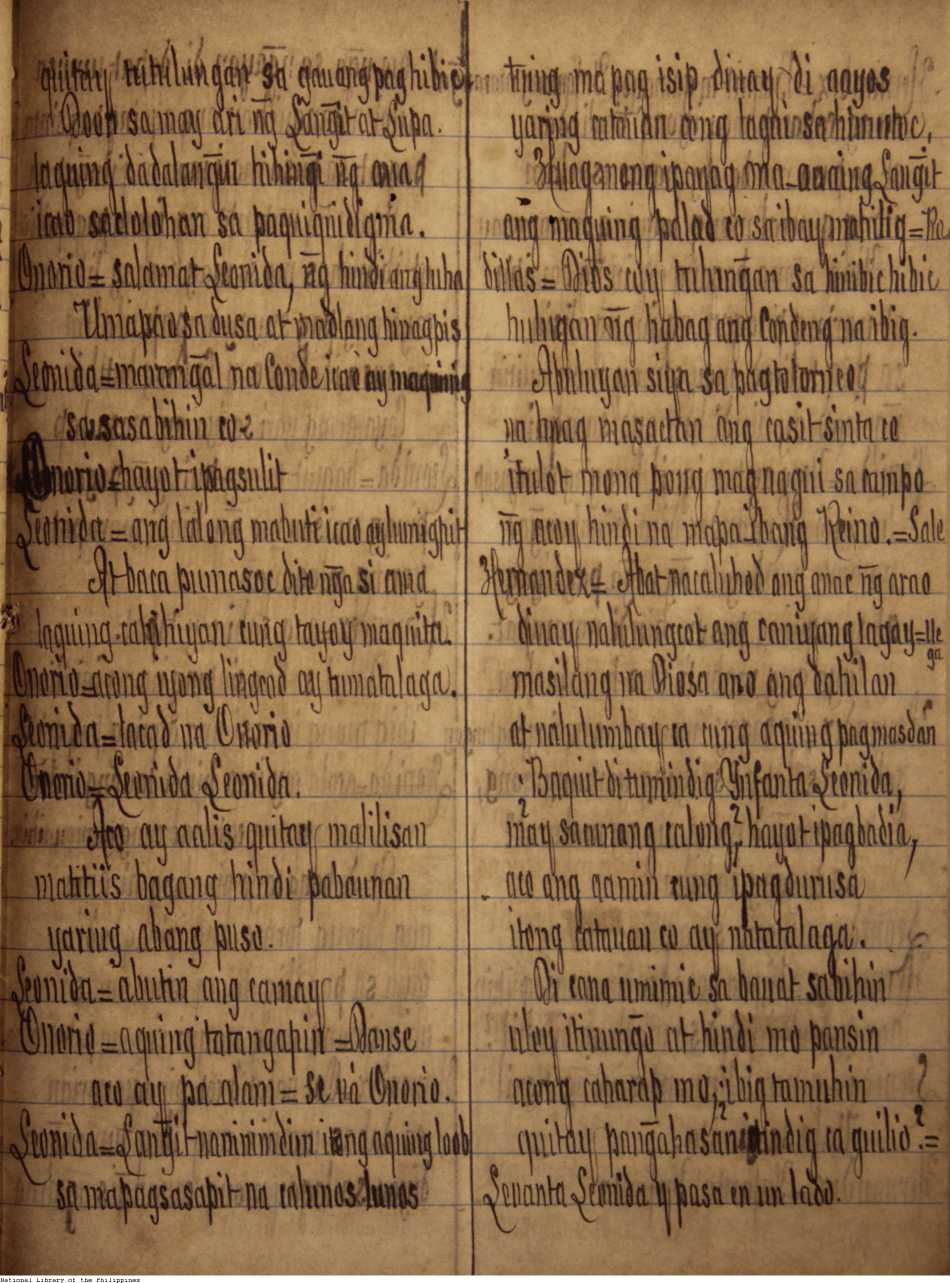 quitay tutulungan sa gauang pag hibic
Doon sa may ari ng̃ Lang̃it at Lupa.
laguing dadalang̃in hihing̃i ng̃ aua
icao saclolohan sa paquiquidigma.
Onorio = salamat Leonida, ng̃ hindi ang luha
Umapao sa dusa at madlang hinagpis
Leonida = marang̃al na Conde icao ay
sasasabihin co
Onorio = hayot ipagsulit
Leonida = ang lalong mabuti icao ay lumigpit
At baca pumasoc dito ng̃a si ama
laguing cahihiyan cung tayoy maquita.
Onorio = acong iyong lingcod ay tumatalaga.
Leonida = lacad na Onorio
Onorio = Leonida Leonida.
Aco ay aalis quitay malilisan
matitiis bagang hindi pabaunan
yaring abang puso.
Leonida = abutin ang camay
Onorio = aquing tatangapin = Danse
aco ay pa-alam = se vá Onorio.
Leonida = Lang̃it naninimdim itong aquing loob
sa mapagsasapit na calunos lunos
tuing mapag isip dinay di aayos
yaring catauan cong laghi sa himutoc,
Huag naneng ipanag ma-auaing Lang̃it
ang maguing palad co sa ibay mahilig = Ro
dillas = Dios coy tuhung̃an sa hinibic hibic
huligan ng̃ habag ang Condeng na ibig.
Abuluyan siya sa pagtotorneo
na huag masactan ang casit sinta co
itulot mona pong magnagui sa campo
ng̃ acoy hindi na mapa-ibang Reino. = Sale
Hernandez = Abat nacaluhod ang anac ng̃ arao
dinay nahilungcot ang caniyang lagay = lle
ga
masilang na Diosa ano ang dahilan
at nalulumbay ca cung aquing pagmasdan
Baquit di tumindig Ynfanta Leonida,
may sacunang calong? hayot ipagbadia,
aco ang aamin cung ipagdurusa
itong catauan co ay natatalaga.
Di cana umimic sa bauat sabihin
uloy itinung̃o at hindi mo pansin
acong caharap mo, ibig tamuhin
quitay pang̃ahasan? tindig ca guilio? =
Levanta Leonida y pasa en un lado.
National Library of the Philippines